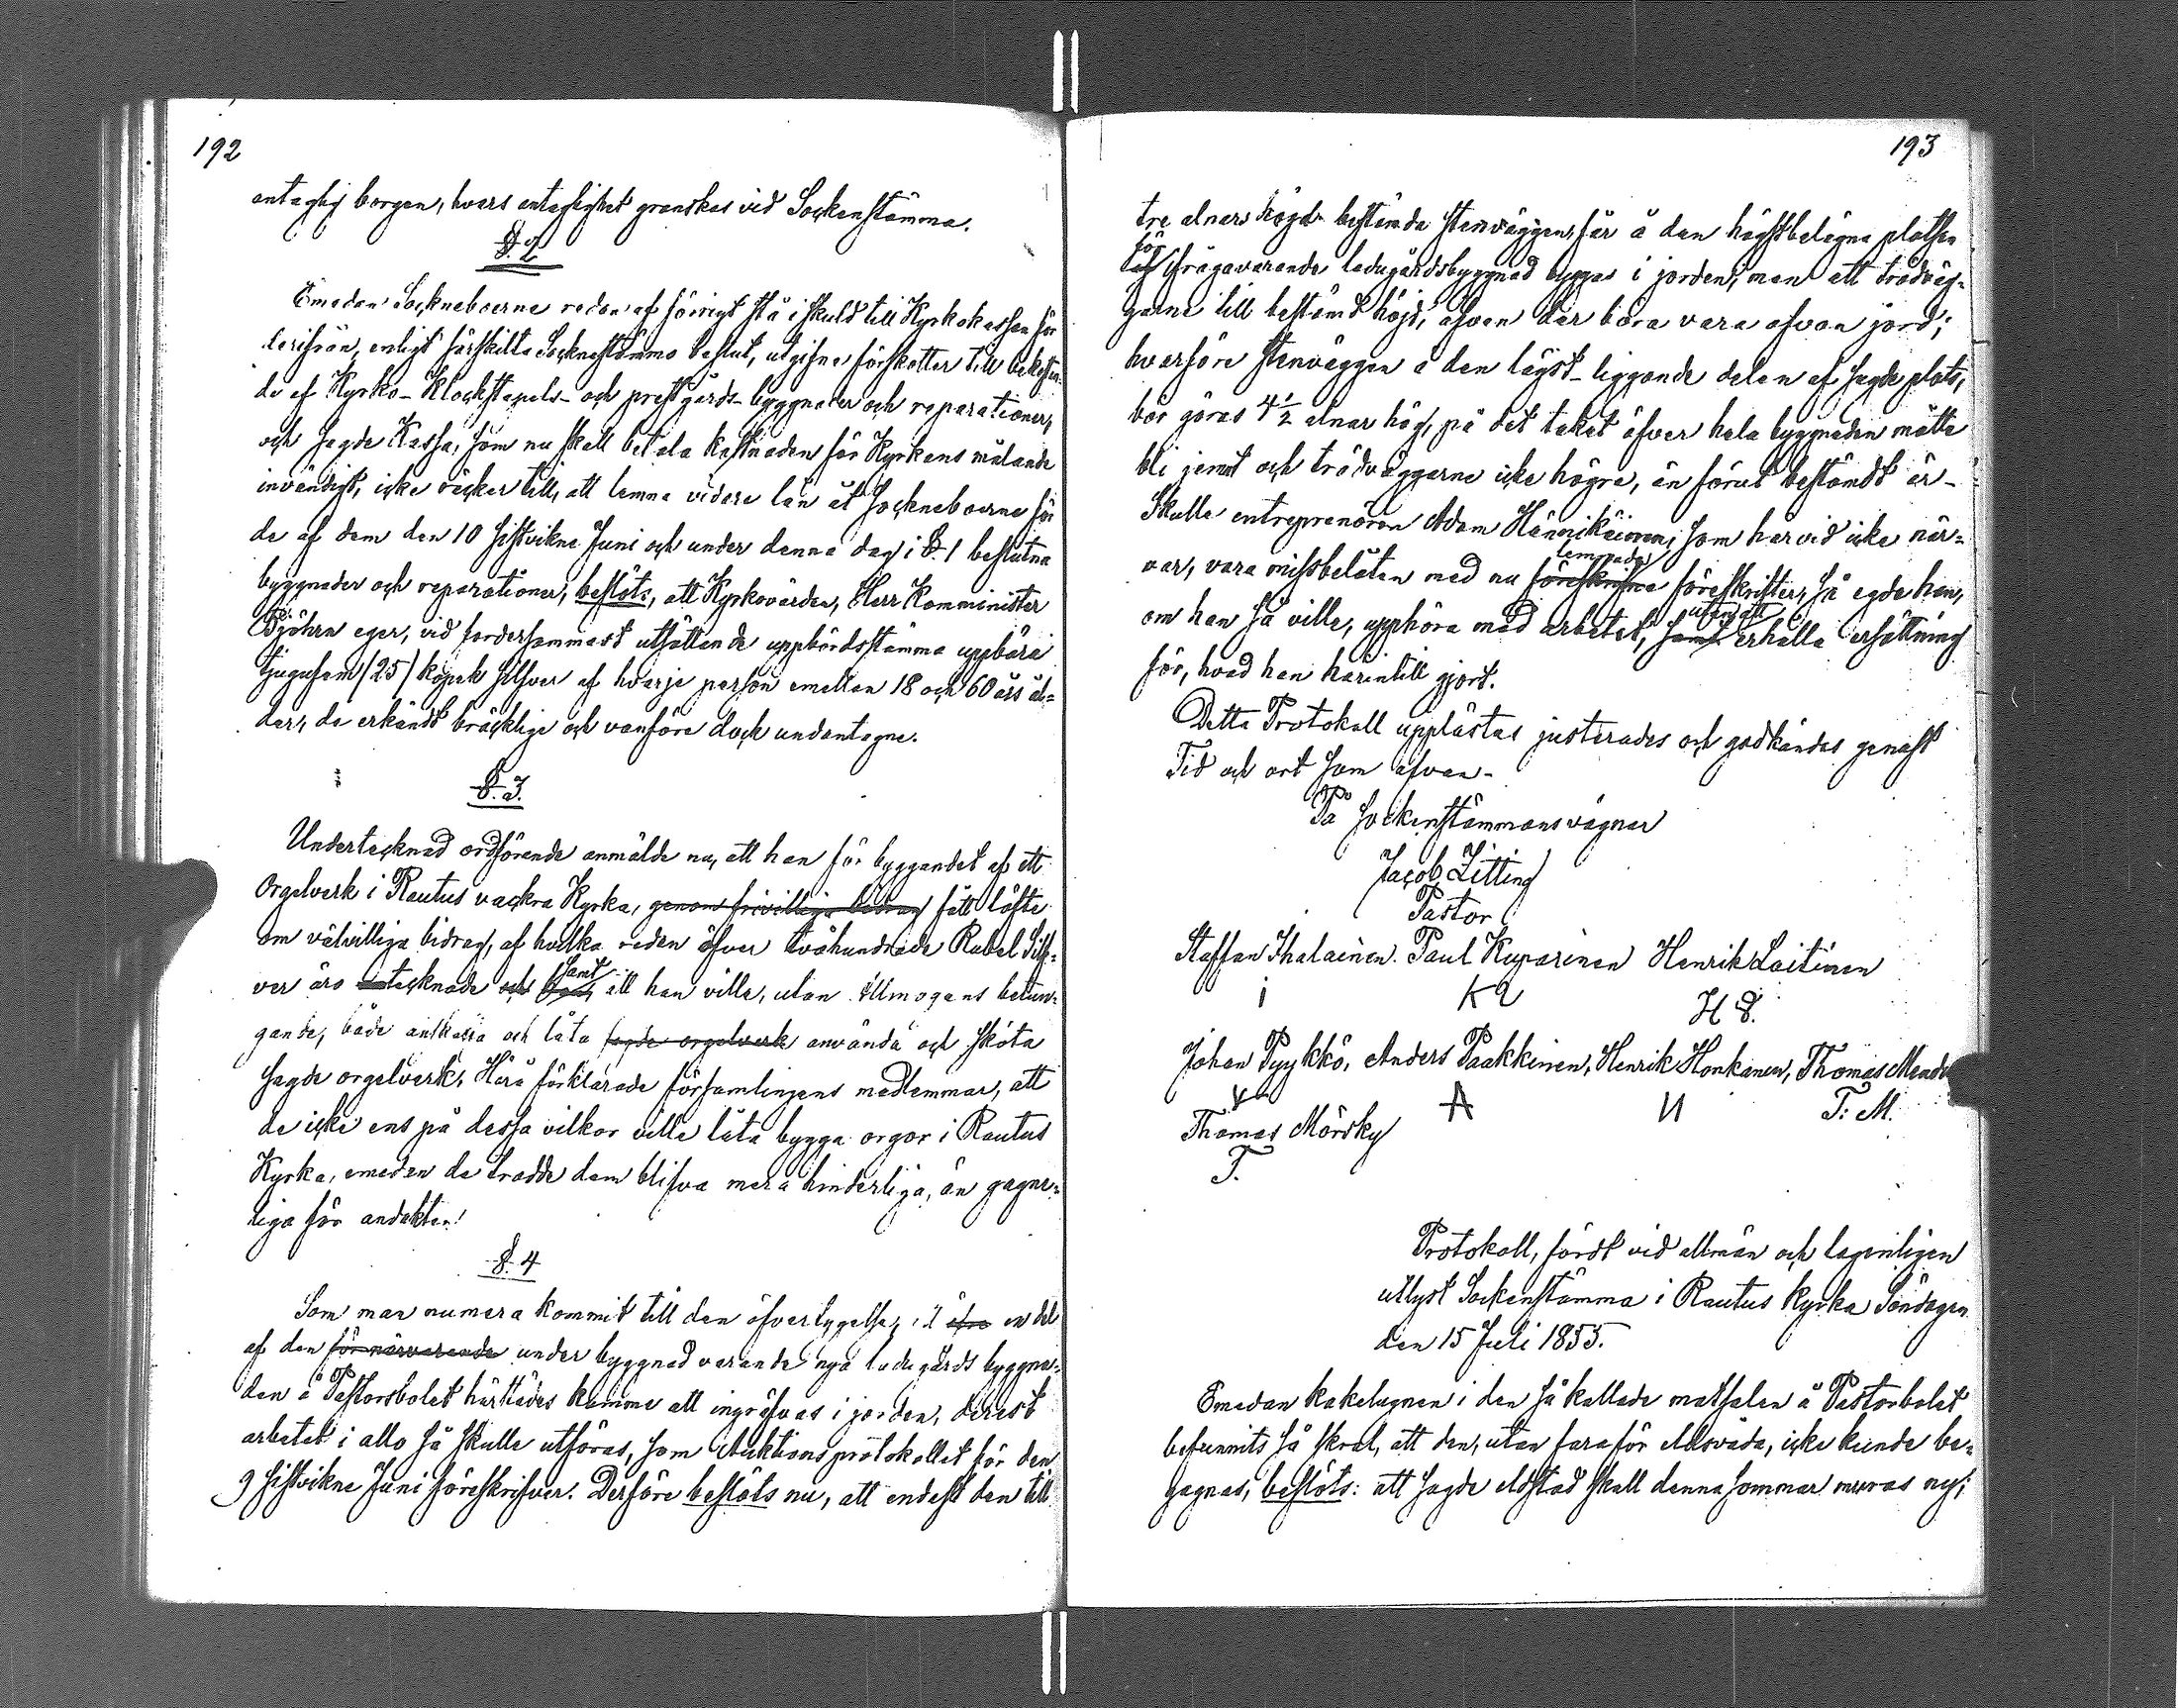 192
antaglig borgen, hvars antaglighet granskas vid Sockenstämma.
§. 2
Emedan Sockneboerne redan af förrigt stå i skuld till Kyrkokassan för
derifrån, enligt särskilta Socknestämmo beslut, utgifne förskotter till bekostan-
de af Kyrko- Klockstapels- och prestgårds-byggnader och reparationer,
och sagde Kassa, som nu skall betala kostnaden för Kyrkans målande
invändigt, icke räcker till, att lemna vidare lån åt Sockneboerne för
de af dem den 10 sistvikne Juni och under denna dag i §. 1 beslutna
byggnader och reparationer, beslöts, att Kyrkovärden, Herr Komminister
Björkn eger, vid fordersammast utsättande uppbördsstämma uppbära
tjugufem (25) kopek silfver af hvarje person emellan 18 och 60 års ål-
der, de erkändt bräcklige och vanföre dock undantagne.
§. 3.
Undertecknad ordförande anmälde nu, att han för byggandet af ett
Orgelverk i Rautus vackra Kyrka, genom frivilliga bidrag fått löfte
om välvilliga bidrag, af hvilka redan öfver tvåhundrade Rubel Silf-
ver äro antecknade och samt att han ville, utan Allmogens betun-
gande, både anskaffa och låta sagde orgelverk använda och sköta
sagde orgelverk. Härå förklarade församlingens medlemmar, att
de icke ens på dessa vilkor ville låta bygga orgor i Rautus
Kyrka, emedan de trodde dem blifva mera hinderliga, än gagne-
liga för andakten!
§. 4
Som man numera kommit till den öfvertygelse, att en del
af den för närvarande under byggnad varande nya ladugårds byggna-
den å Pastorsbolet härstädes komme att ingräfvas i jorden, derest
arbetet i allo så skulle utföras, som Auktions protokollet för den
9 sistvikne Juni föreskrifver. Derföre beslöts nu, att endast den till
193
tre alnars höjd bestämda stenväggen får å den högstbelägna platsen
för
ifrågavarande ladugårdsbyggnad byggas i jorden, men att trädväg-
garne till bestämd höjd, äfven der böra vara ofvan jord;
hvarföre stenväggen å den lägst-liggande delen af sagde plats,
bör göras 4½ alnar hög, på det taket öfver hela byggnaden måtte
bli jemnt och trädväggarne icke högre, än förut bestämdt är-
Skulle entreprenören Adam Hännikäinen, som härvid icke när-
lemnade
var, vara missbelåten med nu föreskrifne föreskrifter, så egde han,
utan att
om han så ville, upphöra med arbetet, samt erhålla ersättning
för, hvad han härintill gjort.
Detta Protokoll upplästes justerades och godkändes genast
Tid och ort som ofvan-
På Sockenstämmans vägnar
Jacob Litting
Pastor
Staffan Ihalainen. Paul Kuparinen Henrik Laitinen
I K H
Johan Pyykkö, Anders Paakkinen, Henrik Honkanen, Thomas
A H T: M.
Thomas Mörsky
T.
Protokoll, fördt vid allmän och lagenligen
utlyst Sockenstämma i Rautus Kyrka Söndagen
den 15 Juli 1855.
Emedan kakelugnen i den så kallade matsalen å Pastorbolet
befunnits så skral, att den, utan fara för eldsvåda, icke kunde be-
gagnas, beslöts: att sagde eldstad skall denna sommar muras ny;